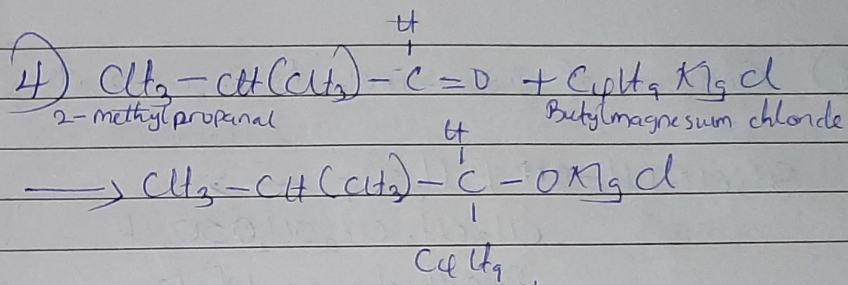 H
4) CH₃ – CH(CH₃) – C = O + C₄H₉ MgCl
2-methylpropanal Butylmagnesum chloride
H
⟶ CH₃ – CH(CH₃) – C – OMgCl
C₄H₉